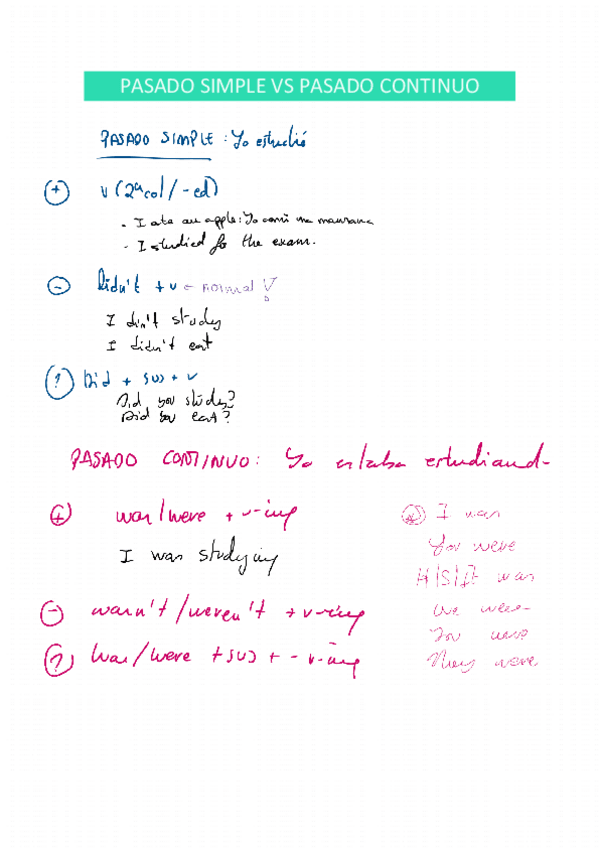 PASADO SIMPLE VS PASADO CONTINUO
PASADO SIMPLE : Yo estudié
(+) v (2ª col / -ed)
- I ate an apple: Yo comí una manzana
- I studied for the exam.
(-) Didn't + v ← normal V
I didn't study
I didn't eat
(?) Did + suj + v
Did you study?
Did you eat?
PASADO CONTINUO: Yo estaba estudiando
(+) was/were + v-ing
I was studying
(-) wasn't/weren't + v-ing
(?) Was/were + suj + - v-ing
I was
You were
H/S/It was
We were
You were
They were